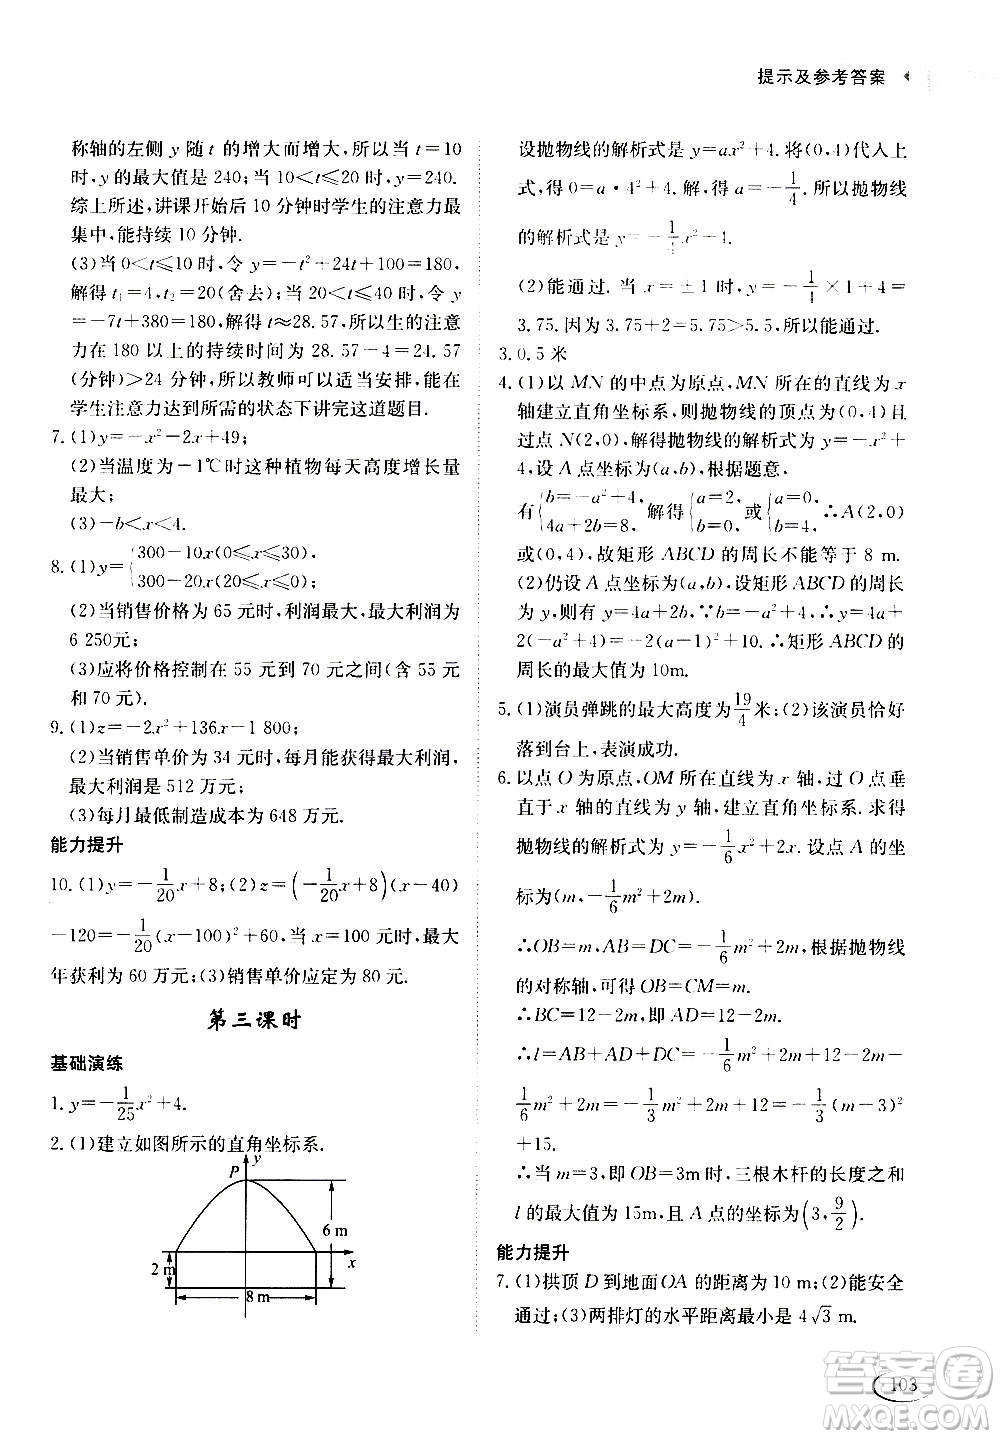 提示及参考答案
称轴的左侧 y 随 t 的增大而增大,所以当 t=10
时,y 的最大值是 240;当 10<t≤20 时,y=240.
综上所述,讲课开始后 10 分钟时学生的注意力最
集中,能持续 10 分钟.
(3)当 0<t≤10 时,令 y=-t²+24t+100=180,
解得 t₁=4,t₂=20(舍去);当 20<t≤40 时,令 y
=-7t+380=180,解得 t≈28.57,所以生的注意
力在 180 以上的持续时间为 28.57-4=24.57
(分钟)>24 分钟,所以教师可以适当安排,能在
学生注意力达到所需的状态下讲完这道题目.
7. (1)y=-x²-2x+49;
(2)当温度为-1℃时这种植物每天高度增长量
最大;
(3)-b<x<4.
8. (1)y={300-10x(0≤x≤30)
300-20x(20≤x≤0);
(2)当销售价格为 65 元时,利润最大,最大利润为
6 250元;
(3)应将价格控制在 55 元到 70 元之间(含 55 元
和 70 元).
9. (1)z=-2x²+136x-1 800;
(2)当销售单价为 34 元时,每月能获得最大利润,
最大利润是 512 万元;
(3)每月最低制造成本为 648 万元.
能力提升
10. (1)y=-1/20x+8;(2)z=(-1/20x+8)(x-40)
-120=-1/20(x-100)²+60,当 x=100 元时,最大
年获利为 60 万元;(3)销售单价应定为 80 元.
第三课时
基础演练
1. y=-1/25x²+4.
2. (1)建立如图所示的直角坐标系.
P
y
6 m
2 m
x
8 m
设抛物线的解析式是 y=ax²+4. 将(0,4)代入上
式,得 0=a·4²+4. 解,得 a=-1/4. 所以抛物线
的解析式是 y=-1/4x²+4.
(2)能通过. 当 x=±1 时,y=-1/4×1+4=
3.75. 因为 3.75+2=5.75>5.5,所以能通过.
3. 0.5 米
4. (1)以 MN 的中点为原点,MN 所在的直线为 x
轴建立直角坐标系,则抛物线的顶点为(0,4)且
过点 N(2,0),解得抛物线的解析式为 y=-x²+
4,设 A 点坐标为(a,b),根据题意.
有{b=-a²+4, 4a+2b=8, 解得{a=2, b=0, 或{a=0, b=4, ∴A(2,0)
或(0,4),故矩形 ABCD 的周长不能等于 8 m.
(2)仍设 A 点坐标为(a,b),设矩形 ABCD 的周长
为 y,则有 y=4a+2b,∵b=-a²+4,∴y=4a+
2(-a²+4)=-2(a-1)²+10.∴矩形 ABCD 的
周长的最大值为 10m.
5. (1)演员弹跳的最大高度为19/4米;(2)该演员恰好
落到台上,表演成功.
6. 以点 O 为原点,OM 所在直线为 x 轴,过 O 点垂
直于 x 轴的直线为 y 轴,建立直角坐标系.求得
抛物线的解析式为 y=-1/6x²+2x. 设点 A 的坐
标为(m,-1/6m²+2m).
∴OB=m,AB=DC=-1/6m²+2m,根据抛物线
的对称轴,可得 OB=CM=m.
∴BC=12-2m,即 AD=12-2m.
∴l=AB+AD+DC=-1/6m²+2m+12-2m-
1/6m²+2m=-1/3m²+2m+12=-1/3(m-3)²
+15.
∴当 m=3,即 OB=3m时,三根木杆的长度之和
l 的最大值为 15m,且 A 点的坐标为(3,9/2).
能力提升
7. (1)拱顶 D 到地面OA 的距离为 10 m;(2)能安全
通过;(3)两排灯的水平距离最小是 4√3 m.
103
答案圈
MXQE.COM